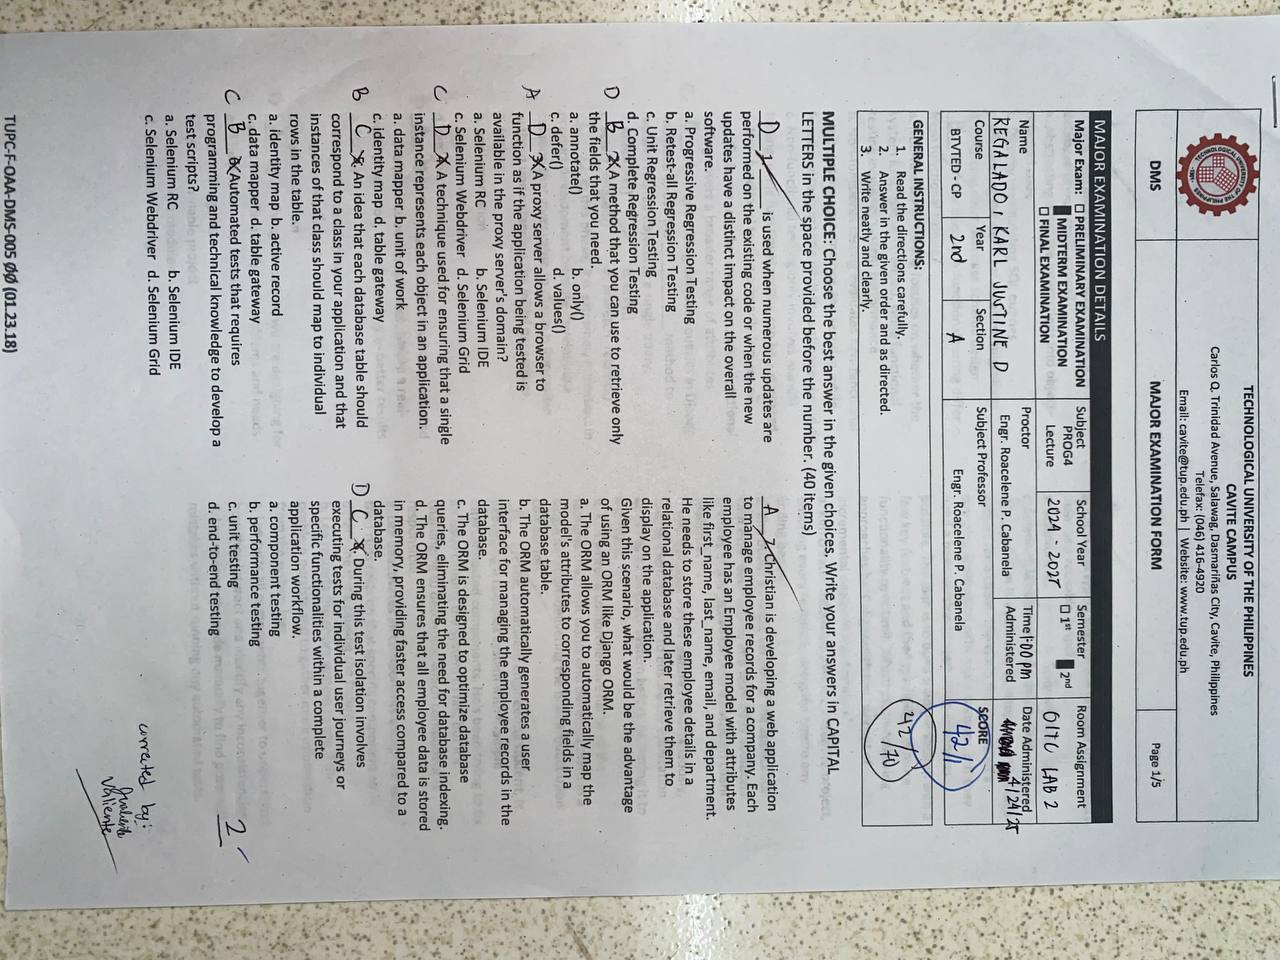 TECHNOLOGICAL UNIVERSITY OF THE PHILIPPINES
CAVITE CAMPUS
Carlos Q. Trinidad Avenue, Salawag, Dasmariñas City, Cavite, Philippines
Telefax: (046) 416-4920
Email: cavite@tup.edu.ph | Website: www.tup.edu.ph
DMS
MAJOR EXAMINATION FORM
Page 1/5
MAJOR EXAMINATION DETAILS
Major Exam: ☐ PRELIMINARY EXAMINATION
■ MIDTERM EXAMINATION
☐ FINAL EXAMINATION
Subject
PROG4
Lecture
School Year
2024 - 2025
Semester
☐ 1st ■ 2nd
Room Assignment
OITC LAB 2
Name
REGALADO, KARL JUSTINE D
Proctor
Engr. Roacelene P. Cabanela
Time
Administered
1:00 PM
Date Administered
4/24/25
Course
BTVTED-CP
Year
2nd
Section
A
Subject Professor
Engr. Roacelene P. Cabanela
SCORE
42/
42/70
GENERAL INSTRUCTIONS:
1. Read the directions carefully.
2. Answer in the given order and as directed.
3. Write neatly and clearly.
MULTIPLE CHOICE: Choose the best answer in the given choices. Write your answers in CAPITAL
LETTERS in the space provided before the number. (40 items)
D 1. ________ is used when numerous updates are
performed on the existing code or when the new
updates have a distinct impact on the overall
software.
a. Progressive Regression Testing
b. Retest-all Regression Testing
c. Unit Regression Testing
d. Complete Regression Testing
D B 2. A method that you can use to retrieve only
the fields that you need.
a. annotate() b. only()
c. defer() d. values()
A D 3. A proxy server allows a browser to
function as if the application being tested is
available in the proxy server's domain?
a. Selenium RC b. Selenium IDE
c. Selenium Webdriver d. Selenium Grid
C D 4. A technique used for ensuring that a single
instance represents each object in an application.
a. data mapper b. unit of work
c. identity map d. table gateway
B C 5. An idea that each database table should
correspond to a class in your application and that
instances of that class should map to individual
rows in the table.
a. identity map b. active record
c. data mapper d. table gateway
C B 6. Automated tests that requires
programming and technical knowledge to develop a
test scripts?
a. Selenium RC b. Selenium IDE
c. Selenium Webdriver d. Selenium Grid
A 7. Christian is developing a web application
to manage employee records for a company. Each
employee has an Employee model with attributes
like first_name, last_name, email, and department.
He needs to store these employee details in a
relational database and later retrieve them to
display on the application.
Given this scenario, what would be the advantage
of using an ORM like Django ORM.
a. The ORM allows you to automatically map the
model's attributes to corresponding fields in a
database table.
b. The ORM automatically generates a user
interface for managing the employee records in the
database.
c. The ORM is designed to optimize database
queries, eliminating the need for database indexing.
d. The ORM ensures that all employee data is stored
in memory, providing faster access compared to a
database.
D C 8. During this test isolation involves
executing tests for individual user journeys or
specific functionalities within a complete
application workflow.
a. component testing
b. performance testing
c. unit testing
d. end-to-end testing
2
corrected by:
Valiente
TUPC-F-OAA-DMS-005 00 (01.23.18)